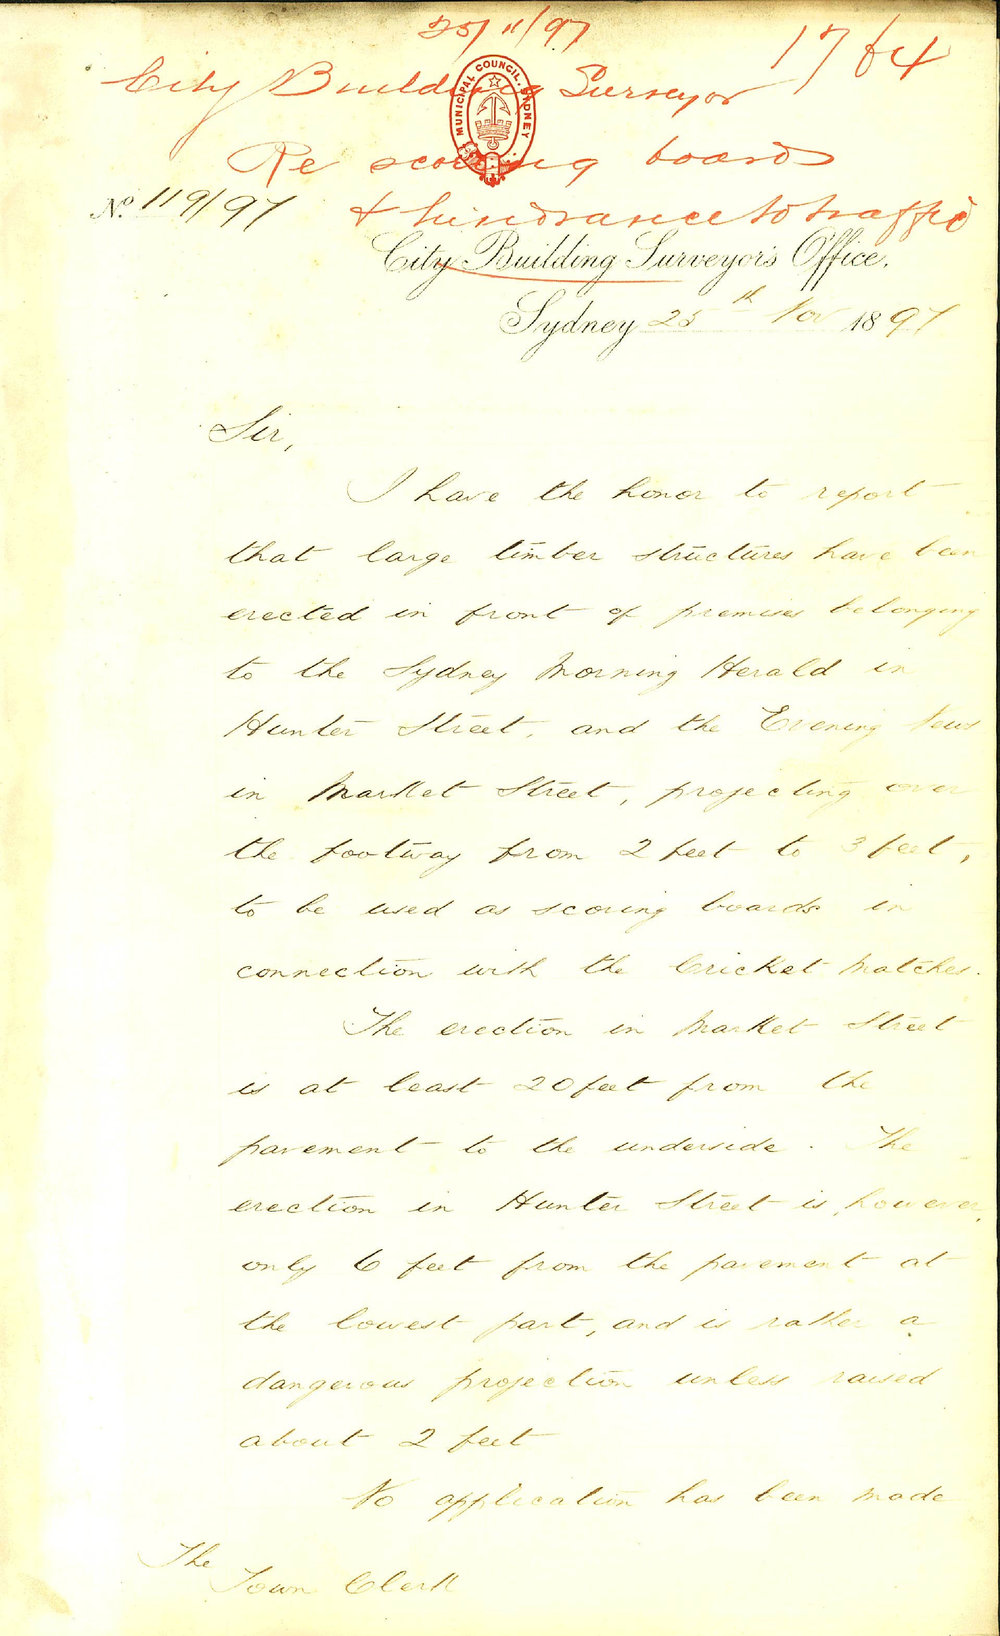 25/11/97
1764
City Building Surveyor
MUNICIPAL COUNCIL. SYDNEY
Re scoring boards
No. 119/97
& hindrance to traffic
City Building Surveyor's Office.
Sydney 25th Nov 1897
Sir,
I have the honor to report
that large timber structures have been
erected in front of premises belonging
to the Sydney Morning Herald in
Hunter Street, and the Evening News
in Market Street, projecting over
the footway from 2 feet to 3 feet,
to be used as scoring boards in
connection with the Cricket Matches.
The erection in Market Street
is at least 20 feet from the
pavement to the underside. The
erection in Hunter Street is, however,
only 6 feet from the pavement at
the lowest part, and is rather a
dangerous projection unless raised
about 2 feet
No application has been made
The
Town Clerk